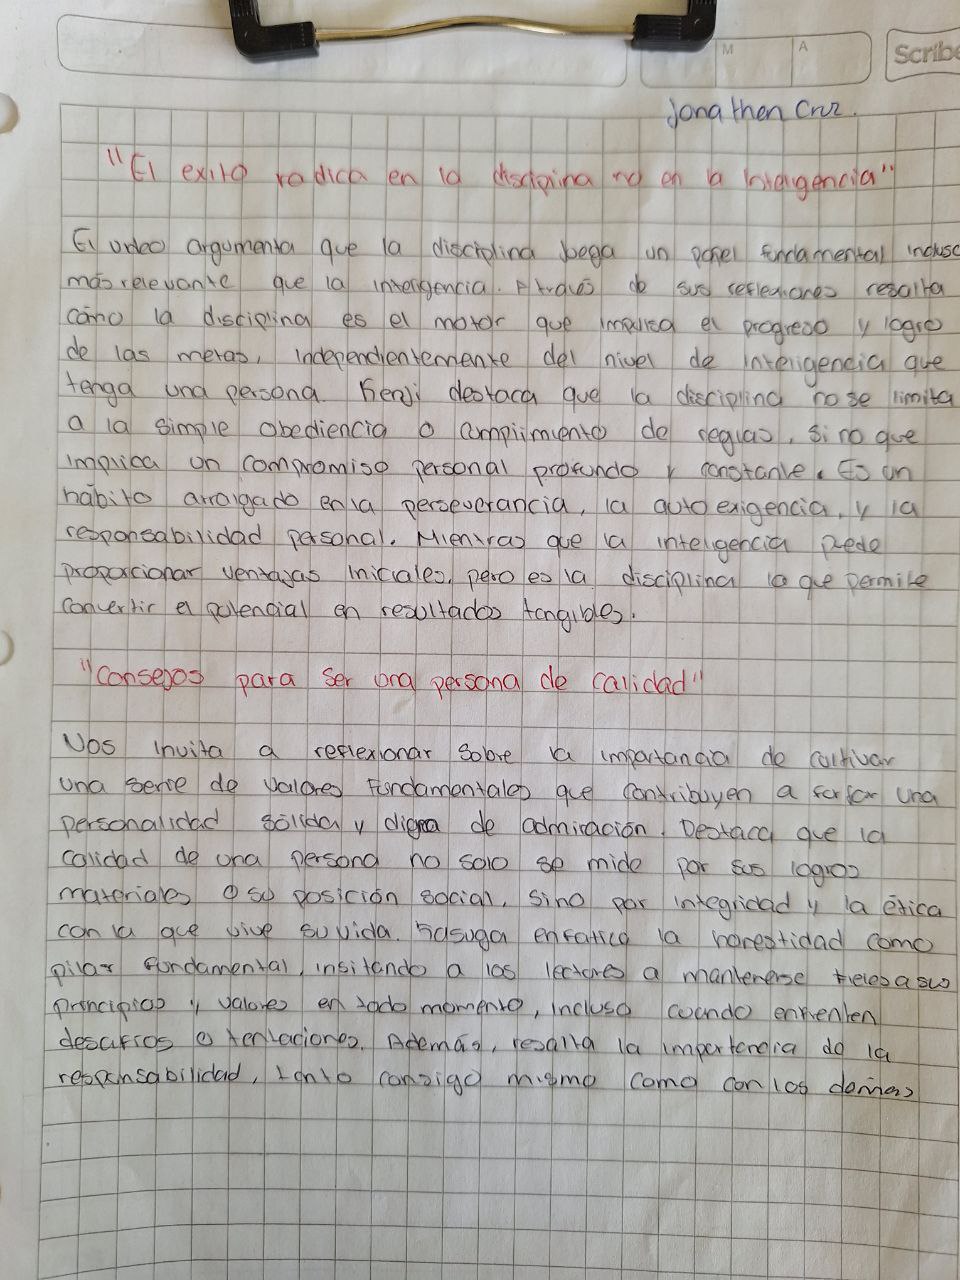 M A Scribe
Jonathen Cruz.
"El exito radica en la disciplina no en la inteligencia"
El video argumenta que la disciplina juega un papel fundamental incluso
más relevante que la inteligencia. A través de sus reflexiones resalta
cómo la disciplina es el motor que impulsa el progreso y logro
de las metas, independientemente del nivel de inteligencia que
tenga una persona. Kenji destaca que la disciplina no se limita
a la simple obediencia o cumplimiento de reglas, si no que
implica un compromiso personal profundo y constante. Es un
hábito arraigado en la perseverancia, la auto exigencia, y la
responsabilidad personal. Mientras que la inteligencia puede
proporcionar ventajas iniciales, pero es la disciplina lo que permite
convertir el potencial en resultados tangibles.
"Consejos para ser una persona de calidad"
Nos invita a reflexionar sobre la importancia de cultivar
una serie de valores fundamentales que contribuyen a forjar una
personalidad sólida y digna de admiración. Destaca que la
calidad de una persona no solo se mide por sus logros
materiales o su posición social, sino por integridad y la ética
con la que vive su vida. enfatica la honestidad como
pilar fundamental, insitando a los lectores a mantenerse fieles a sus
principios y valores en todo momento, incluso cuando enfrenten
desafíos o tentaciones. Además, resalta la importancia de la
responsabilidad, tanto consigo mismo como con los demás